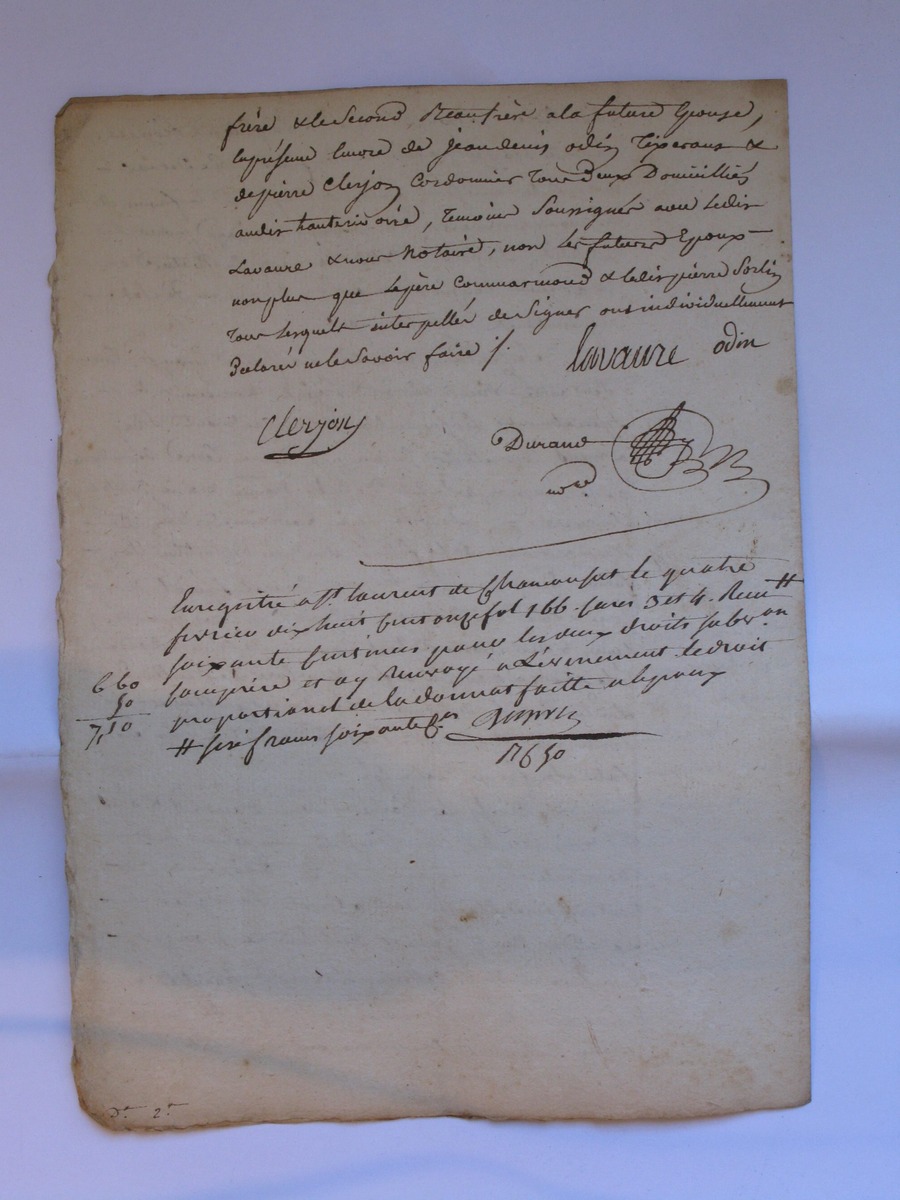 frère & le second Beaufrère a la future Epouse,
en présence encore de jean denis odin Tixerant &
de pierre Clerjon Cordonnier Tous Deux Domiciliés
audit hauterivoire, temoins Soussignés avec ledit
Lavaure & nous Notaire, non les futurs Epoux
non plus que le père Commarmond & ledit pierre Sorlin
Tous lesquels interpellés de Signer ont individuellement
Déclaré ne le Savoir faire /.
lavaure odin
Clerjon
Durand
nore
Enregistré a St. laurent de Chamousset le quatre
fevrier dix huit cent onze fol 166. cases 3 et 4. Recu #
soixante centimes pour les deux droits subvon
comprise et ay renvoyé a L'évenement le droit
proportionel de la donnat faitte a lepoux
# six francs soixante Cs
6 60
50
7,10
17650
Dt. 2t.